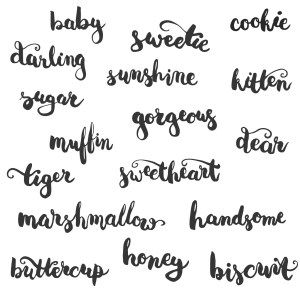 baby
sweetie
cookie
darling
sunshine
kitten
sugar
gorgeous
muffin
dear
tiger
sweetheart
marshmallow
handsome
honey
buttercup
biscuit